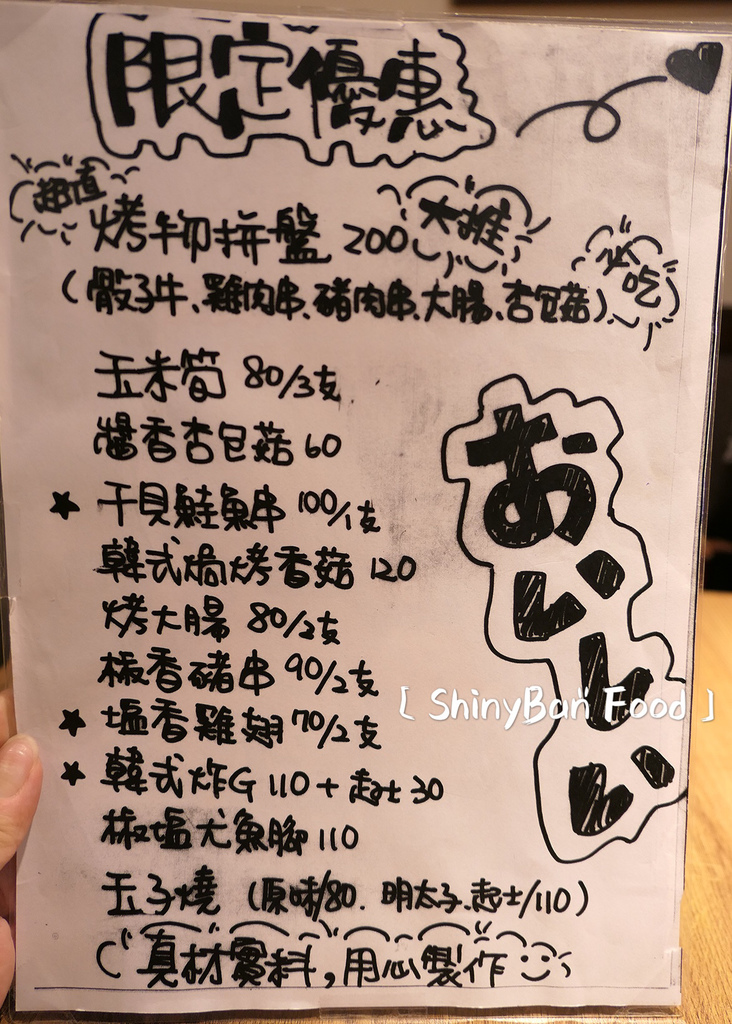 限定優惠
超值
烤物拼盤 200
大推
必吃
(骰子牛、雞肉串、豬肉串、大腸、杏包菇)
玉米筍 80/3支
醬香杏包菇 60
★ 干貝鮭魚串 100/1支
韓式焗烤香菇 120
烤大腸 80/2支
椒香豬串 90/2支
★ 塩香雞翅 70/2支
★ 韓式炸G 110 + 起士 30
椒塩尤魚腳 110
玉子燒 (原味/80. 明太子.起士/110)
真材實料,用心製作
おいしい
[ ShinyBan Food ]